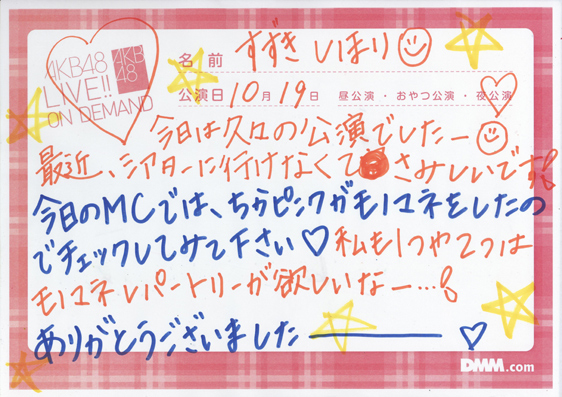 AKB48
LIVE!!
ON DEMAND
AKB
48
名前 すずき しほり
公演日 10月19日 昼公演・おやつ公演・夜公演
今日は久々の公演でしたー
最近、シアターに行けなくてさみしいです!
今日のMCでは、ちかピンクがモノマネをしたの
でチェックしてみて下さい♡ 私も1つや2つは
モノマネレパートリーが欲しいなー…!
ありがとうございました――― ♡
DMM.com